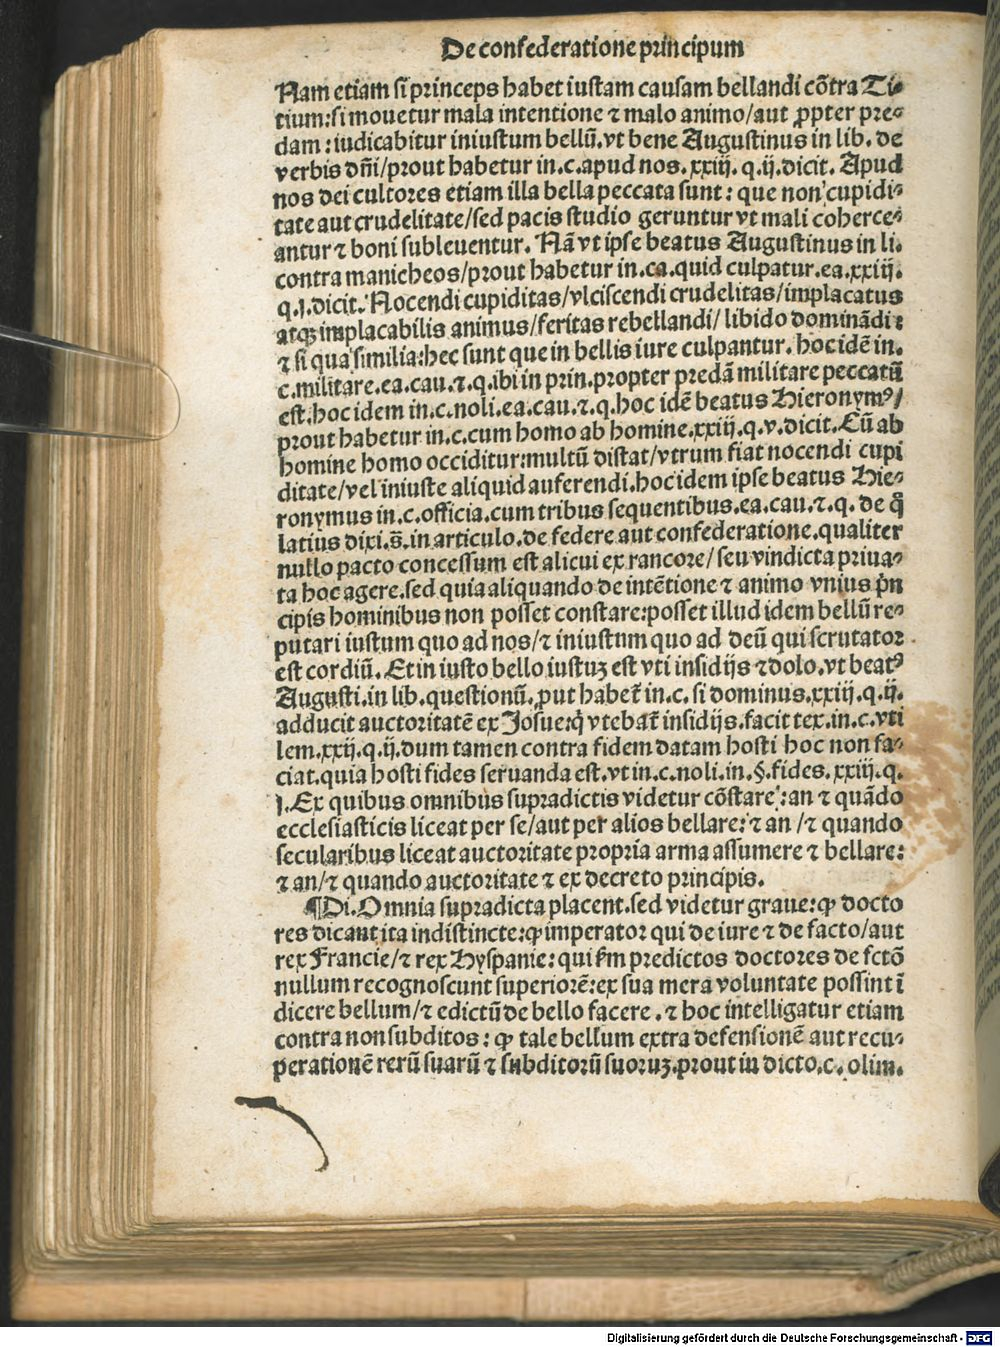 De confederatione principum
Nam etiam si princeps habet iustam causam bellandi cõtra Ti⸗
tium: si mouetur mala intentione ⁊ malo animo/aut ꝓpter pre⸗
dam: iudicabitur iniustum bellũ. vt bene Augustinus in lib. de
verbis dñi/prout habetur in .c. apud nos. xxiij. q. ij. dicit. Apud
nos dei cultores etiam illa bella peccata sunt: que non cupidi⸗
tate aut crudelitate/sed pacis studio geruntur vt mali coherce⸗
antur ⁊ boni subleuentur. Nã vt ipse beatus Augustinus in li.
contra manicheos/prout habetur in .ca. quid culpatur. ea. xxiij.
q. j. dicit. Nocendi cupiditas/vlciscendi crudelitas/implacatus
atqꝫ implacabilis animus/feritas rebellandi/libido dominãdi:
⁊ si qua similia: hec sunt que in bellis iure culpantur. hoc idẽ in.
c. militare. ea. cau. ⁊. q. ibi in prin. propter predã militare peccatũ
est. hoc idem in .c. noli. ea. cau. ⁊. q. hoc idẽ beatus Hieronymꝰ/
prout habetur in .c. cum homo ab homine. xxiij. q. v. dicit. Cũ ab
homine homo occiditur: multũ distat/vtrum fiat nocendi cupi
ditate/vel iniuste aliquid auferendi. hoc idem ipse beatus Hie⸗
ronymus in .c. officia. cum tribus sequentibus. ea. cau. ⁊. q. de q̃
latius dixi. s̃. in articulo. de federe aut confederatione. qualiter
nullo pacto concessum est alicui ex rancore/seu vindicta priua⸗
ta hoc agere. sed quia aliquando de intẽtione ⁊ animo vnius p̃n
cipis hominibus non posset constare: posset illud idem bellũ re⸗
putari iustum quo ad nos/⁊ iniustum quo ad deũ qui scrutator
est cordiũ. Et in iusto bello iustuꝫ est vti insidijs ⁊ dolo. vt beatꝰ
Augusti. in lib. questionũ. ꝓut habet̃ in .c. si dominus. xxiij. q. ij.
adducit auctoritatẽ ex Josue: q̃ vtebat̃ insidijs. facit tex. in .c. vti
lem. xxij. q. ij. dum tamen contra fidem datam hosti hoc non fa⸗
ciat. quia hosti fides seruanda est. vt in .c. noli. in .§. fides. xxiij. q.
j. Ex quibus omnibus supradictis videtur cõstare: an ⁊ quãdo
ecclesiasticis liceat per se/aut per alios bellare: ⁊ an/⁊ quando
secularibus liceat auctoritate propria arma assumere ⁊ bellare:
⁊ an/⁊ quando auctoritate ⁊ ex decreto principis.
¶Di. Omnia supradicta placent. sed videtur graue: ꝙ docto
res dicant ita indistincte: ꝙ imperator qui de iure ⁊ de facto/aut
rex Francie/⁊ rex Hyspanie: qui ẜm predictos doctores de fctõ
nullum recognoscunt superiorẽ: ex sua mera voluntate possint ĩ
dicere bellum/⁊ edictũ de bello facere. ⁊ hoc intelligatur etiam
contra non subditos: ꝙ tale bellum extra defensionẽ aut recu⸗
perationẽ rerũ suarũ ⁊ subditorũ suoruꝫ. prout in dicto. c. olim.
Digitalisierung gefördert durch die Deutsche Forschungsgemeinschaft - DFG